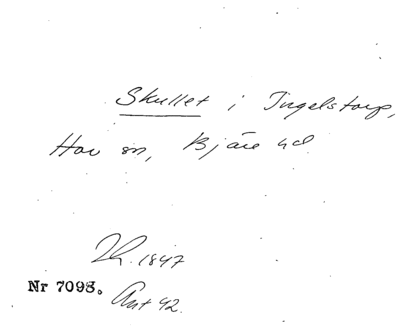 Skullet i Ingelstorp,
Hov sn, Bjäre hd.
1847
Nr 7098. Ant 42.